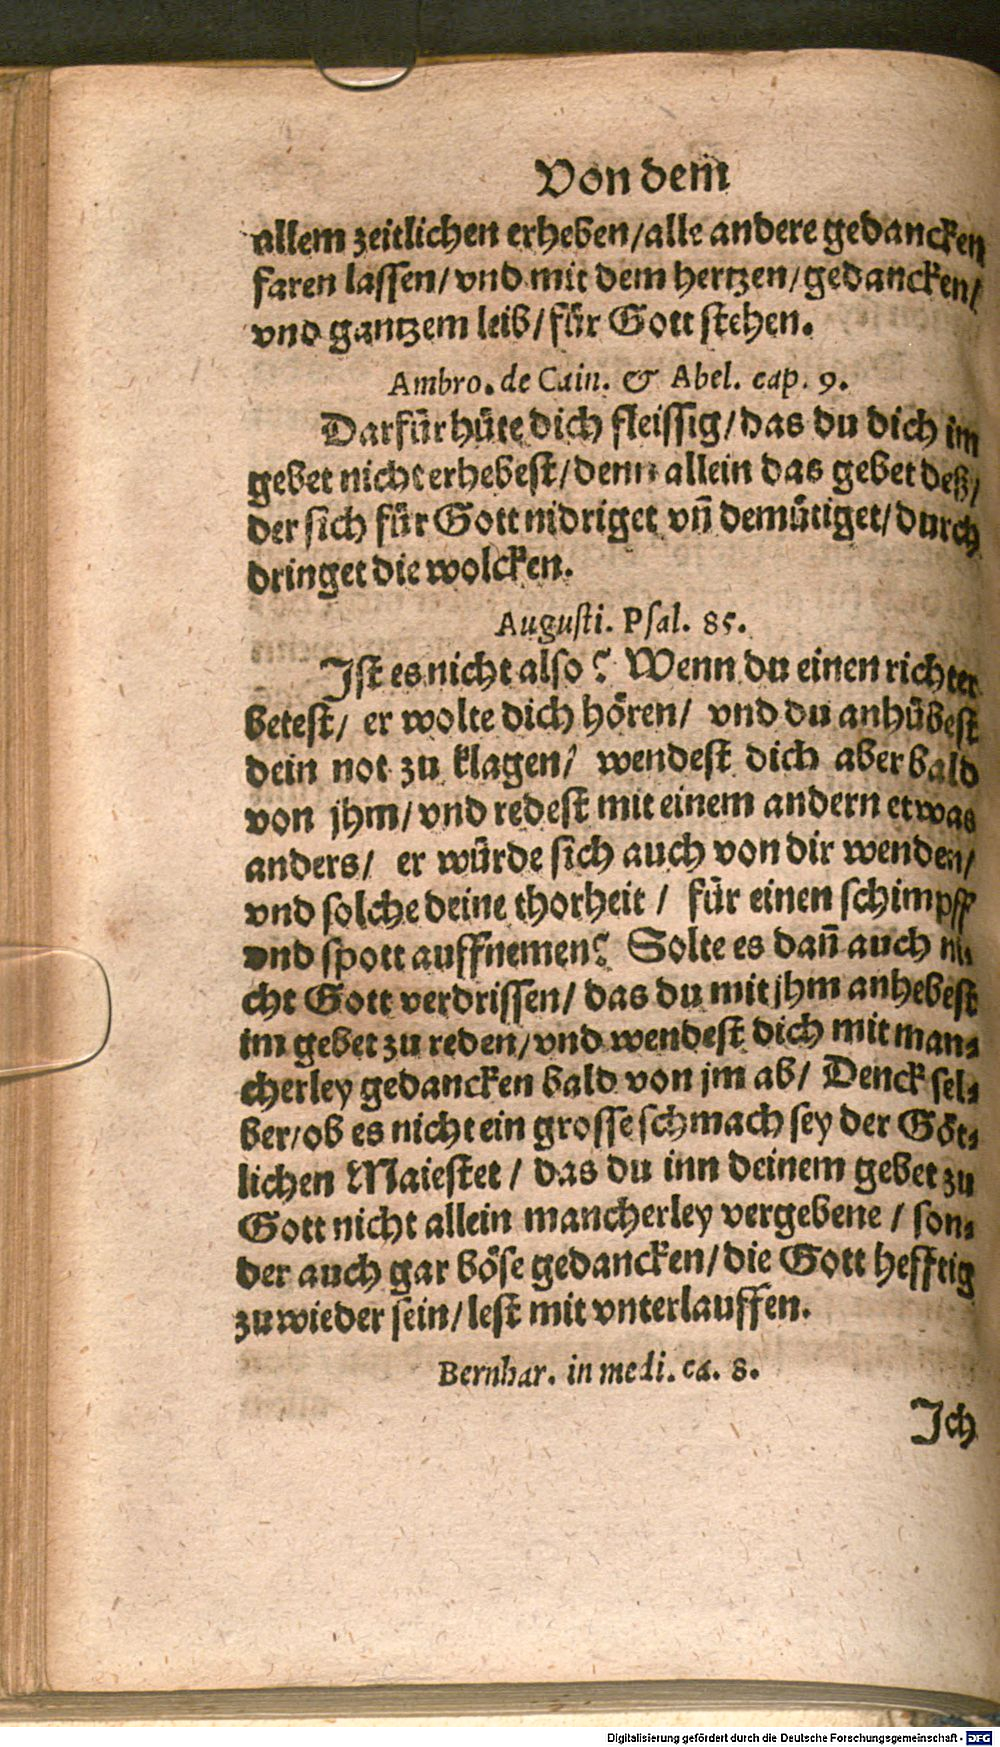 Von dem
allem zeitlichen erheben/alle andere gedancken
faren lassen/vnd mit dem hertzen/gedancken/
vnd gantzem leib/für Gott stehen.
Ambro. de Cain. & Abel. cap. 9.
Darfür hüte dich fleissig/das du dich im
gebet nicht erhebest/denn allein das gebet deß/
der sich für Gott nidriget vñ demütiget/durch
dringet die wolcken.
Augusti. Psal. 85.
Ist es nicht also? Wenn du einen richter
betest/ er wolte dich hören/ vnd du anhübest
dein not zu klagen/ wendest dich aber bald
von jhm/vnd redest mit einem andern etwas
anders/ er würde sich auch von dir wenden/
vnd solche deine thorheit / für einen schimpff
vnd spott auffnemen? Solte es dañ auch ni-
cht Gott verdrissen/ das du mit jhm anhebest
im gebet zu reden/vnd wendest dich mit man-
cherley gedancken bald von jm ab/ Denck sel-
ber/ob es nicht ein grosse schmach sey der Göt-
lichen Maiestet / das du inn deinem gebet zu
Gott nicht allein mancherley vergebene / son-
der auch gar böse gedancken/die Gott hefftig
zu wieder sein/lest mit vnterlauffen.
Bernhar. in medi. ca. 8.
Ich
Digitalisierung gefördert durch die Deutsche Forschungsgemeinschaft - DFG